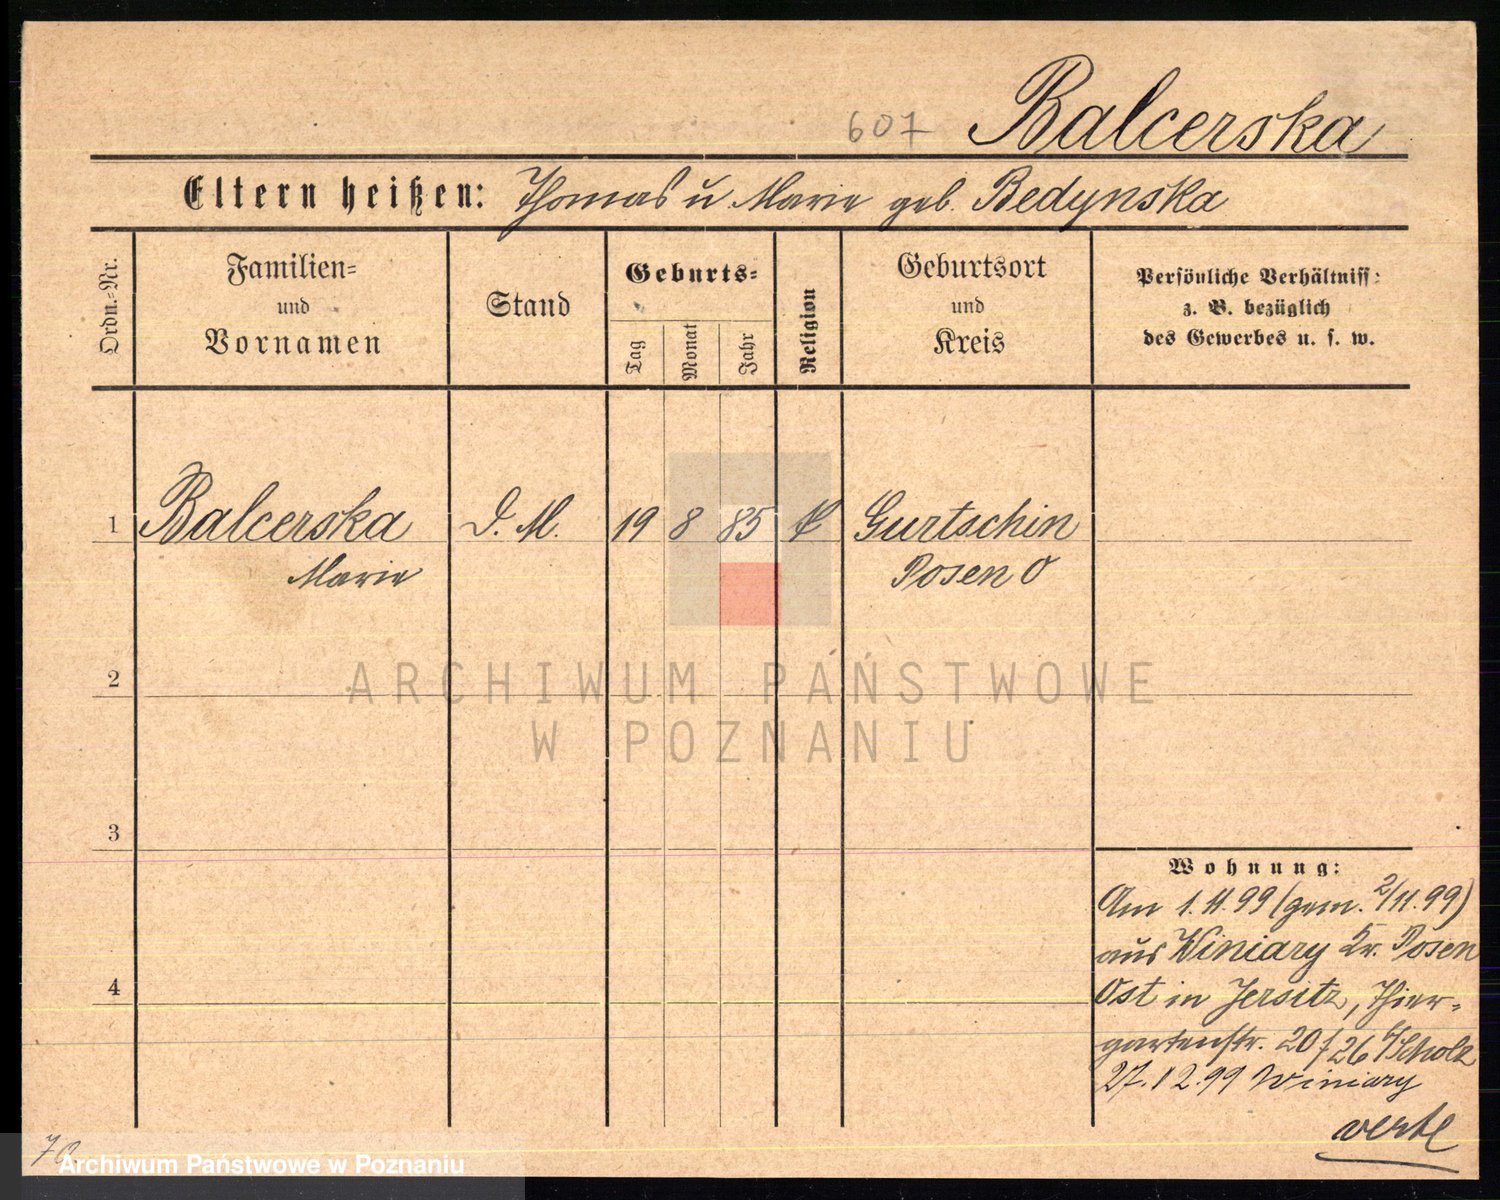 607 Balcerska
Eltern heißen: Thomas u Marie geb. Bedynska
Ordn.-Nr.
Familien-
und
Vornamen
Stand
Geburts-
Tag
Monat
Jahr
Religion
Geburtsort
und
Kreis
Persönliche Verhältniss:
z. B. bezüglich
des Gewerbes u. s. w.
1 Balcerska D. M. 19 8 85 k Gurtschin
Marie Posen O
2
3
4
Wohnung:
Am 1.11.99 (gem. 2/11.99)
aus Winiary Kr. Posen
Ost in Jersitz, Thier-
gartenstr. 20/26 b/Scholz
27.12.99 Winiary
verte
ARCHIWUM PAŃSTWOWE
W POZNANIU
Archiwum Państwowe w Poznaniu